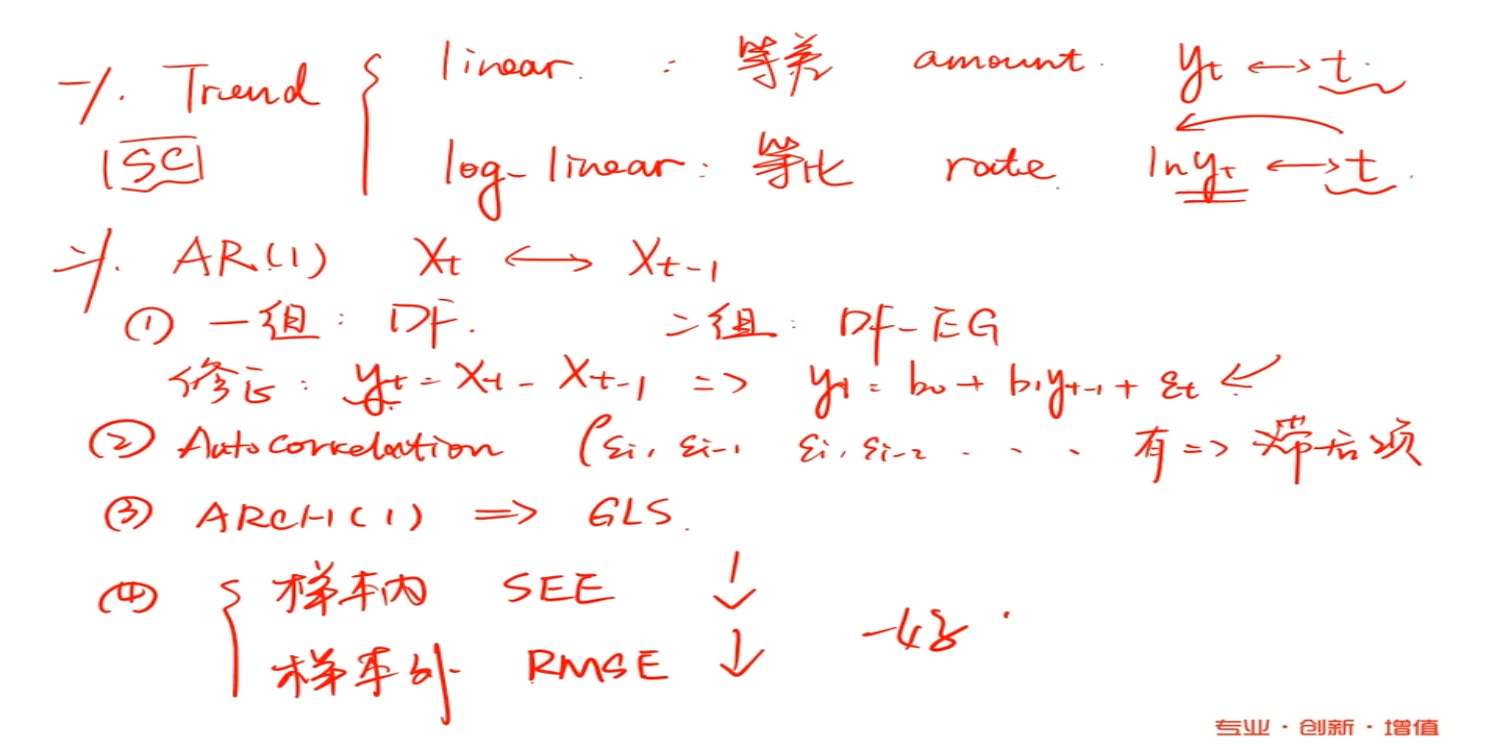 一、Trend { linear : 等差 amount. yt ↔ t.
|SC| log-linear: 等比 rate. ln yt ↔ t.
二、AR(1) Xt ↔ Xt-1
① 一组: DF. 二组: DF-EG
修正: yt = Xt - Xt-1 => yt = b0 + b1yt-1 + εt ↙
② Autocorrelation (εi, εi-1 εi, εi-2 . . . 有 => 滞后项
③ ARCH(1) => GLS.
④ { 样本内 SEE ↓
样本外 RMSE ↓
专业·创新·增值